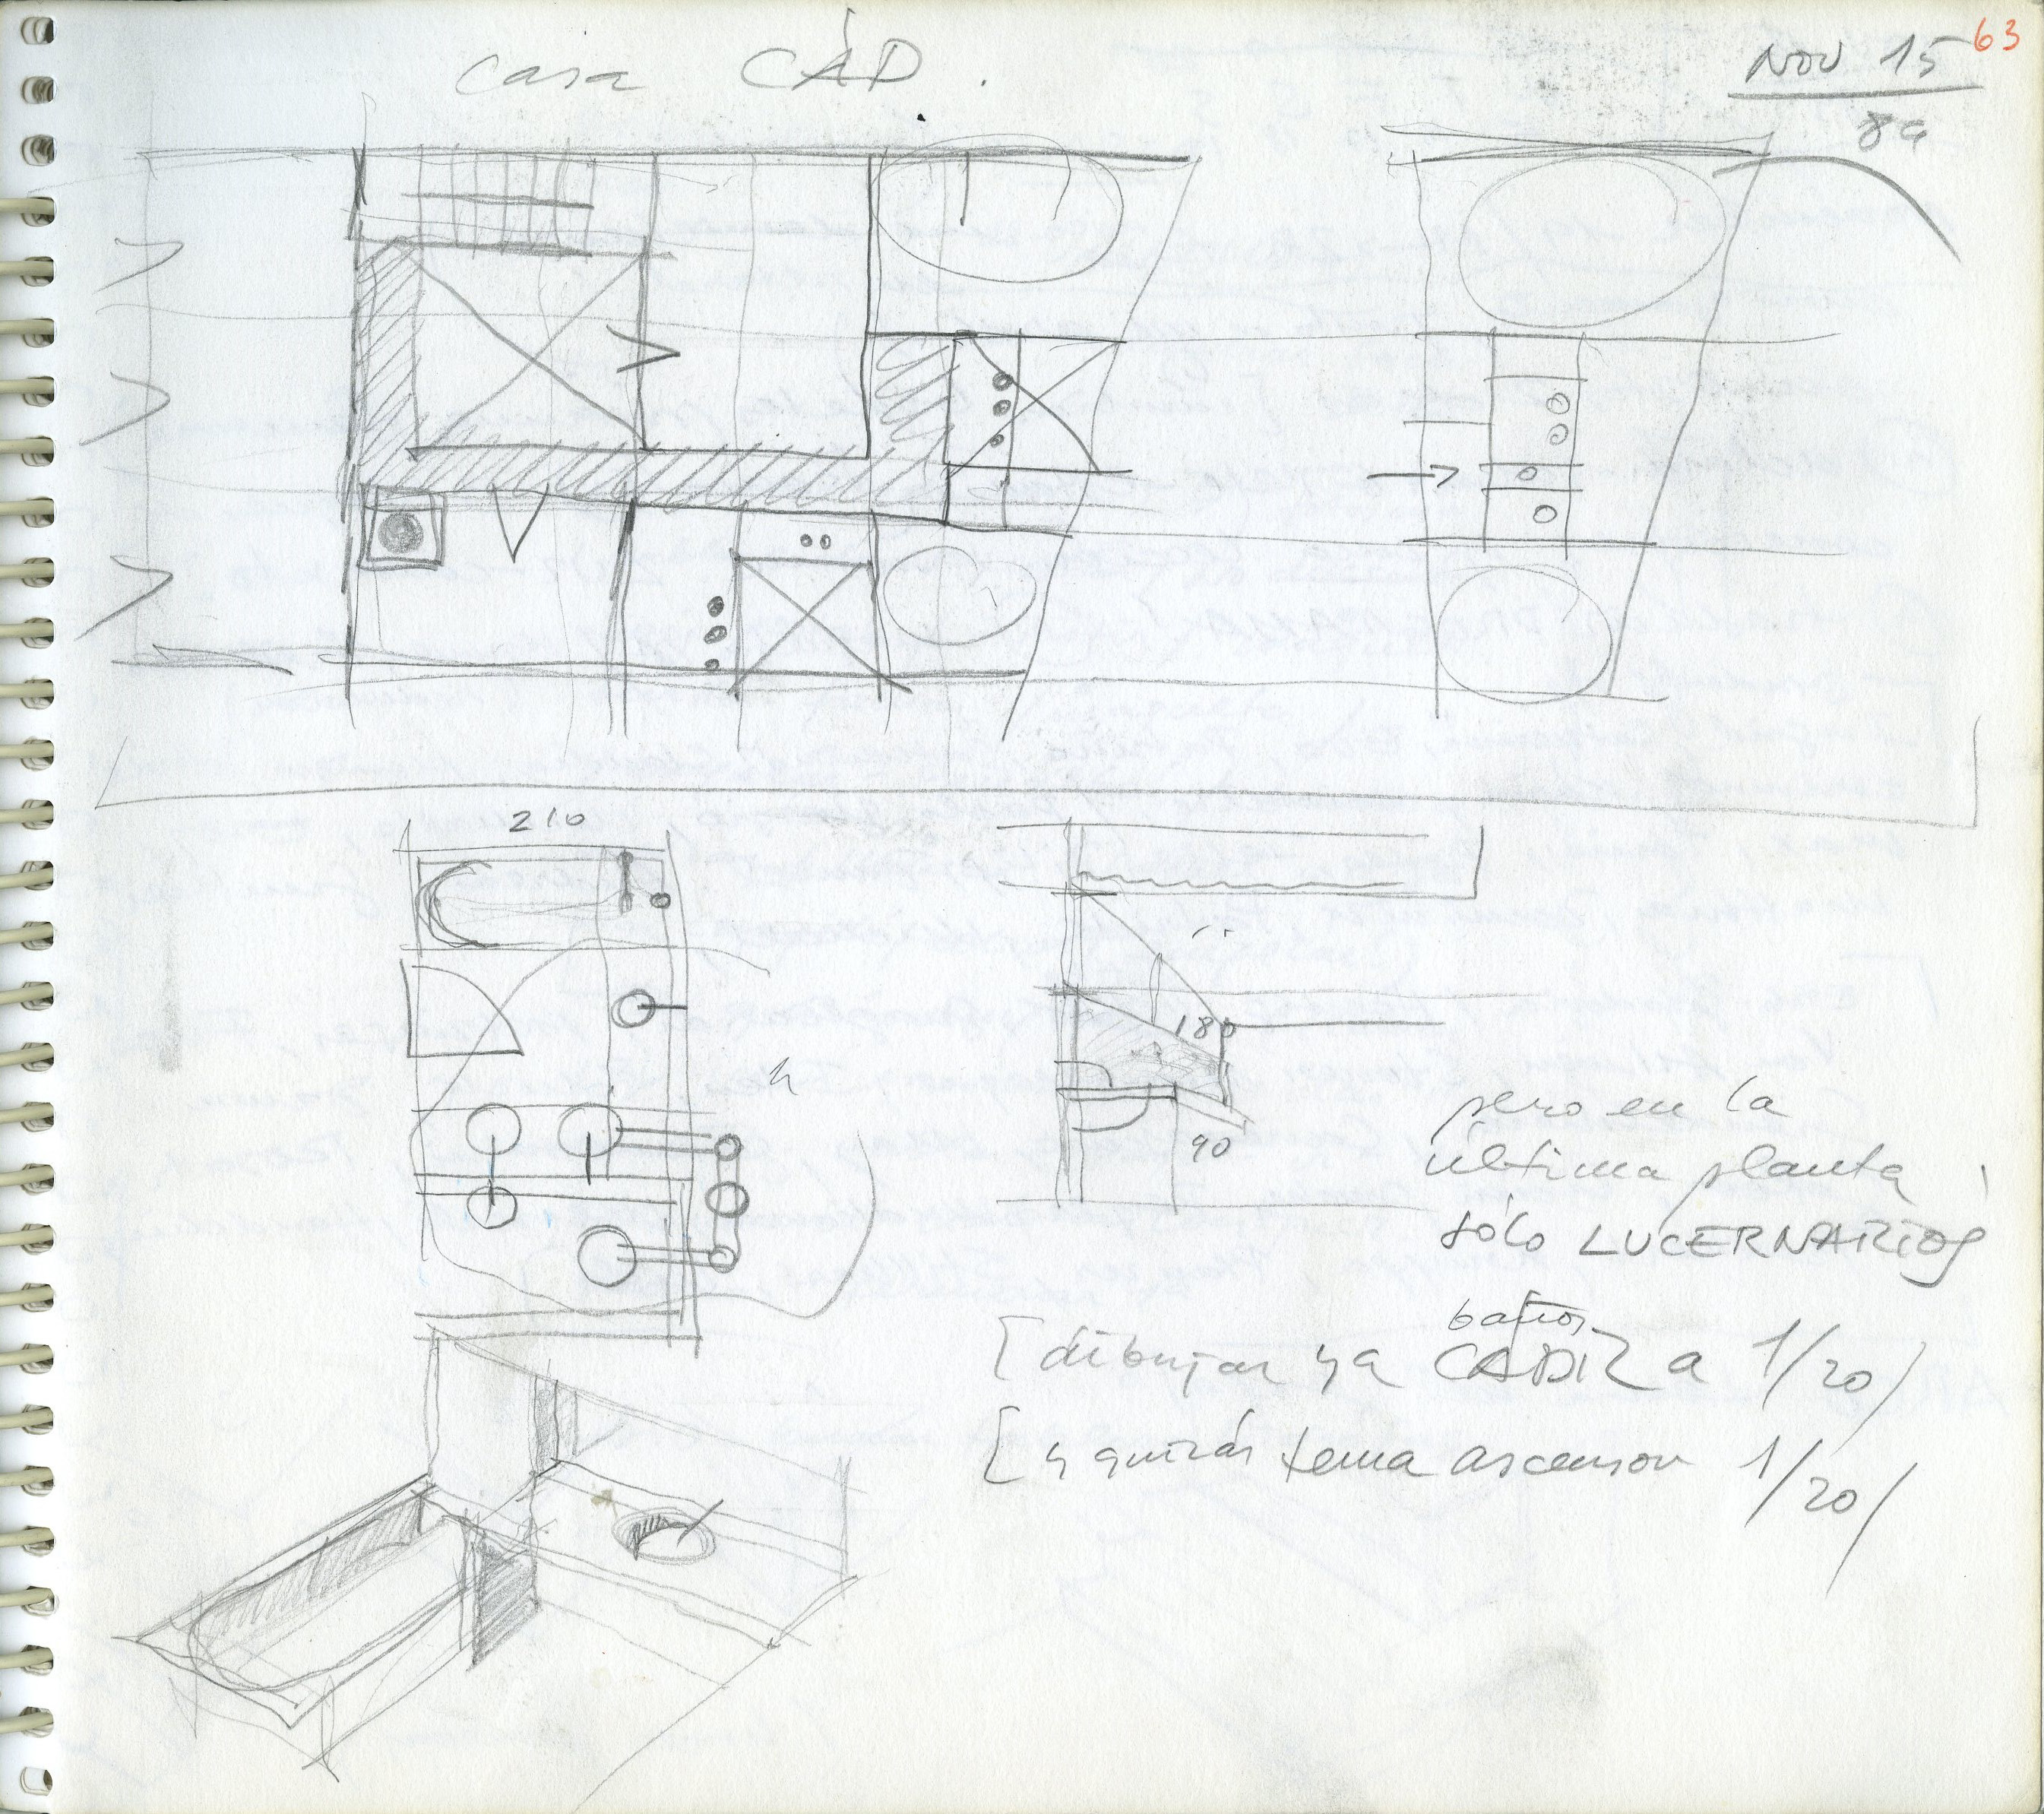 casa CÁD.
NOV 15
63
210
180
90
pero en la
última planta
sólo LUCERNARIOS
baños
[ dibujar ya CÁDIZ a 1/20/
[ y quizás tema ascensor 1/20/